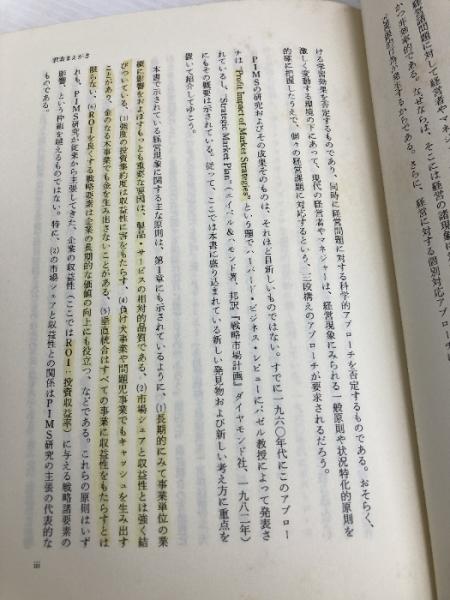 訳者まえがき
ける学習効果を否定するものであり、同時に経営問題に対する科学的アプローチを否定するものである。おそらく、
激しく変動する環境の下にあって、現代の経営者やマネージャーは、経営現象にみられる一般原則や状況特化的原則を
的確に把握したうえで、個々の経営課題に対応するという、三段構えのアプローチが要求されるだろう。
PIMSの研究およびその成果そのものは、それほど目新しいものではない。すでに一九六〇年代にこのアプロー
チは "Profit Impact of Market Strategies" という題でハーバード・ビジネス・レビューにバゼル教授によって発表さ
れているし、"Strategic Market Plan"（エイベル＆ハモンド著、邦訳『戦略市場計画』ダイヤモンド社、一九八二年）
にもその概要は示されている。従って、ここでは本書に盛り込まれている新しい発見物および新しい考え方に重点を
置いて紹介してゆこう。
本書で示されている経営現象に関する主な原則は、第1章にも示されているように、(1)長期的にみて事業単位の業
績に影響をおよぼすもっとも重要な要因は、製品・サービスの相対的品質である、(2)市場シェアと収益性とは強く結
びついている、(3)強度の投資集約度は収益性に害をもたらす、(4)負け犬事業や問題児事業でもキャッシュを生み出す
ことがあり、金のなる木事業でも金を生み出さないことがある、(5)垂直統合はすべての事業に収益性をもたらすとは
限らない、(6)ROIを良くする戦略要素は企業の長期的な価値の向上にも役立つ、などである。これらの原則はいず
れも、PIMS研究が従来から主張してきた、企業の収益性（ここではROI：投資収益率）に与える戦略諸要素の
影響、という枠組を越えるものではない。特に、(2)の市場シェアと収益性との関係はPIMS研究の主張の代表的な
ものである。
iii
経営諸問題に対して経営者やマネ
かつ非効率的である。なぜならば、そこには経営の諸現象
発生するからである。さらに、経営に対する個別対応アプローチは